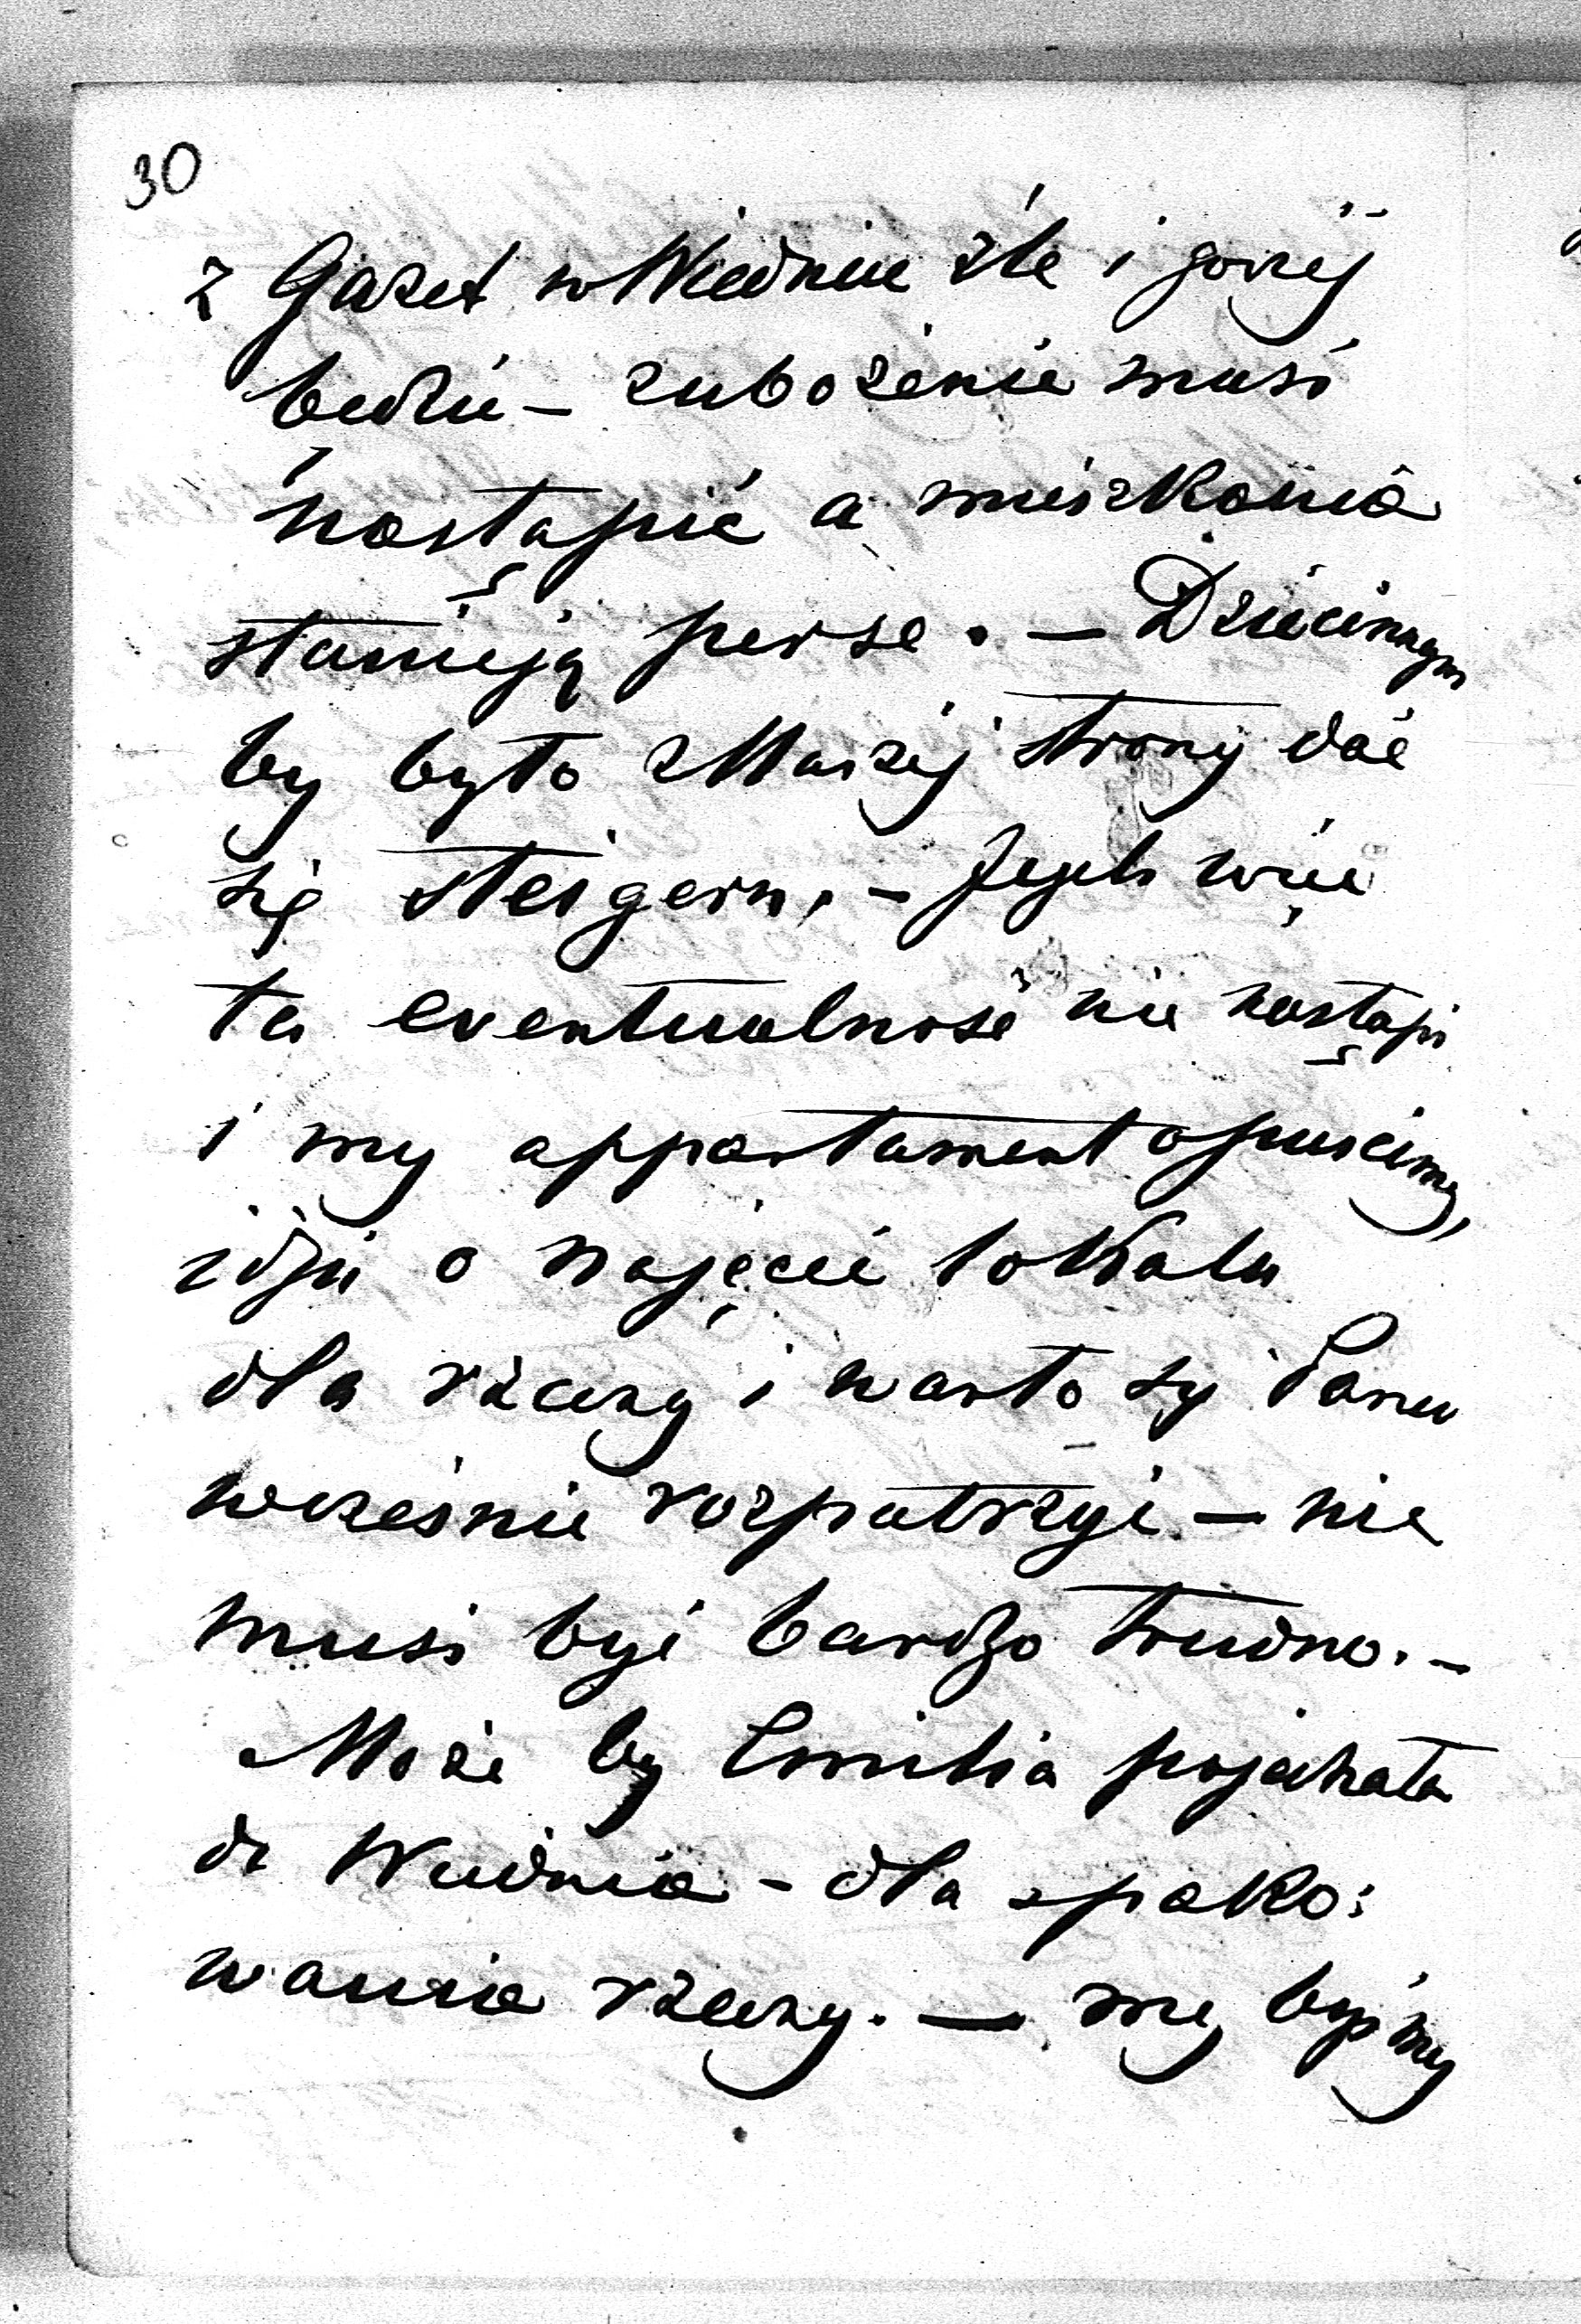 30
z Gazet w Wiedniu źle i gorzéj
będzie – zubożenie musi
nastąpić a mieszkania
stanieją per se. – Dziecinnym
by było z Naszéj strony dać
się steigern. – Jeżeli więc
ta eventualność nie nastąpi
i my appartament opuścimy,
idzie o najęcie lokalu
dla rzeczy i warto się Panu
wcześnie rozpatrzyć – nie
musi być bardzo trudno. –
Może by Emilia pojechała
do Wiednia – dla spako:
wania rzeczy. – my byśmy